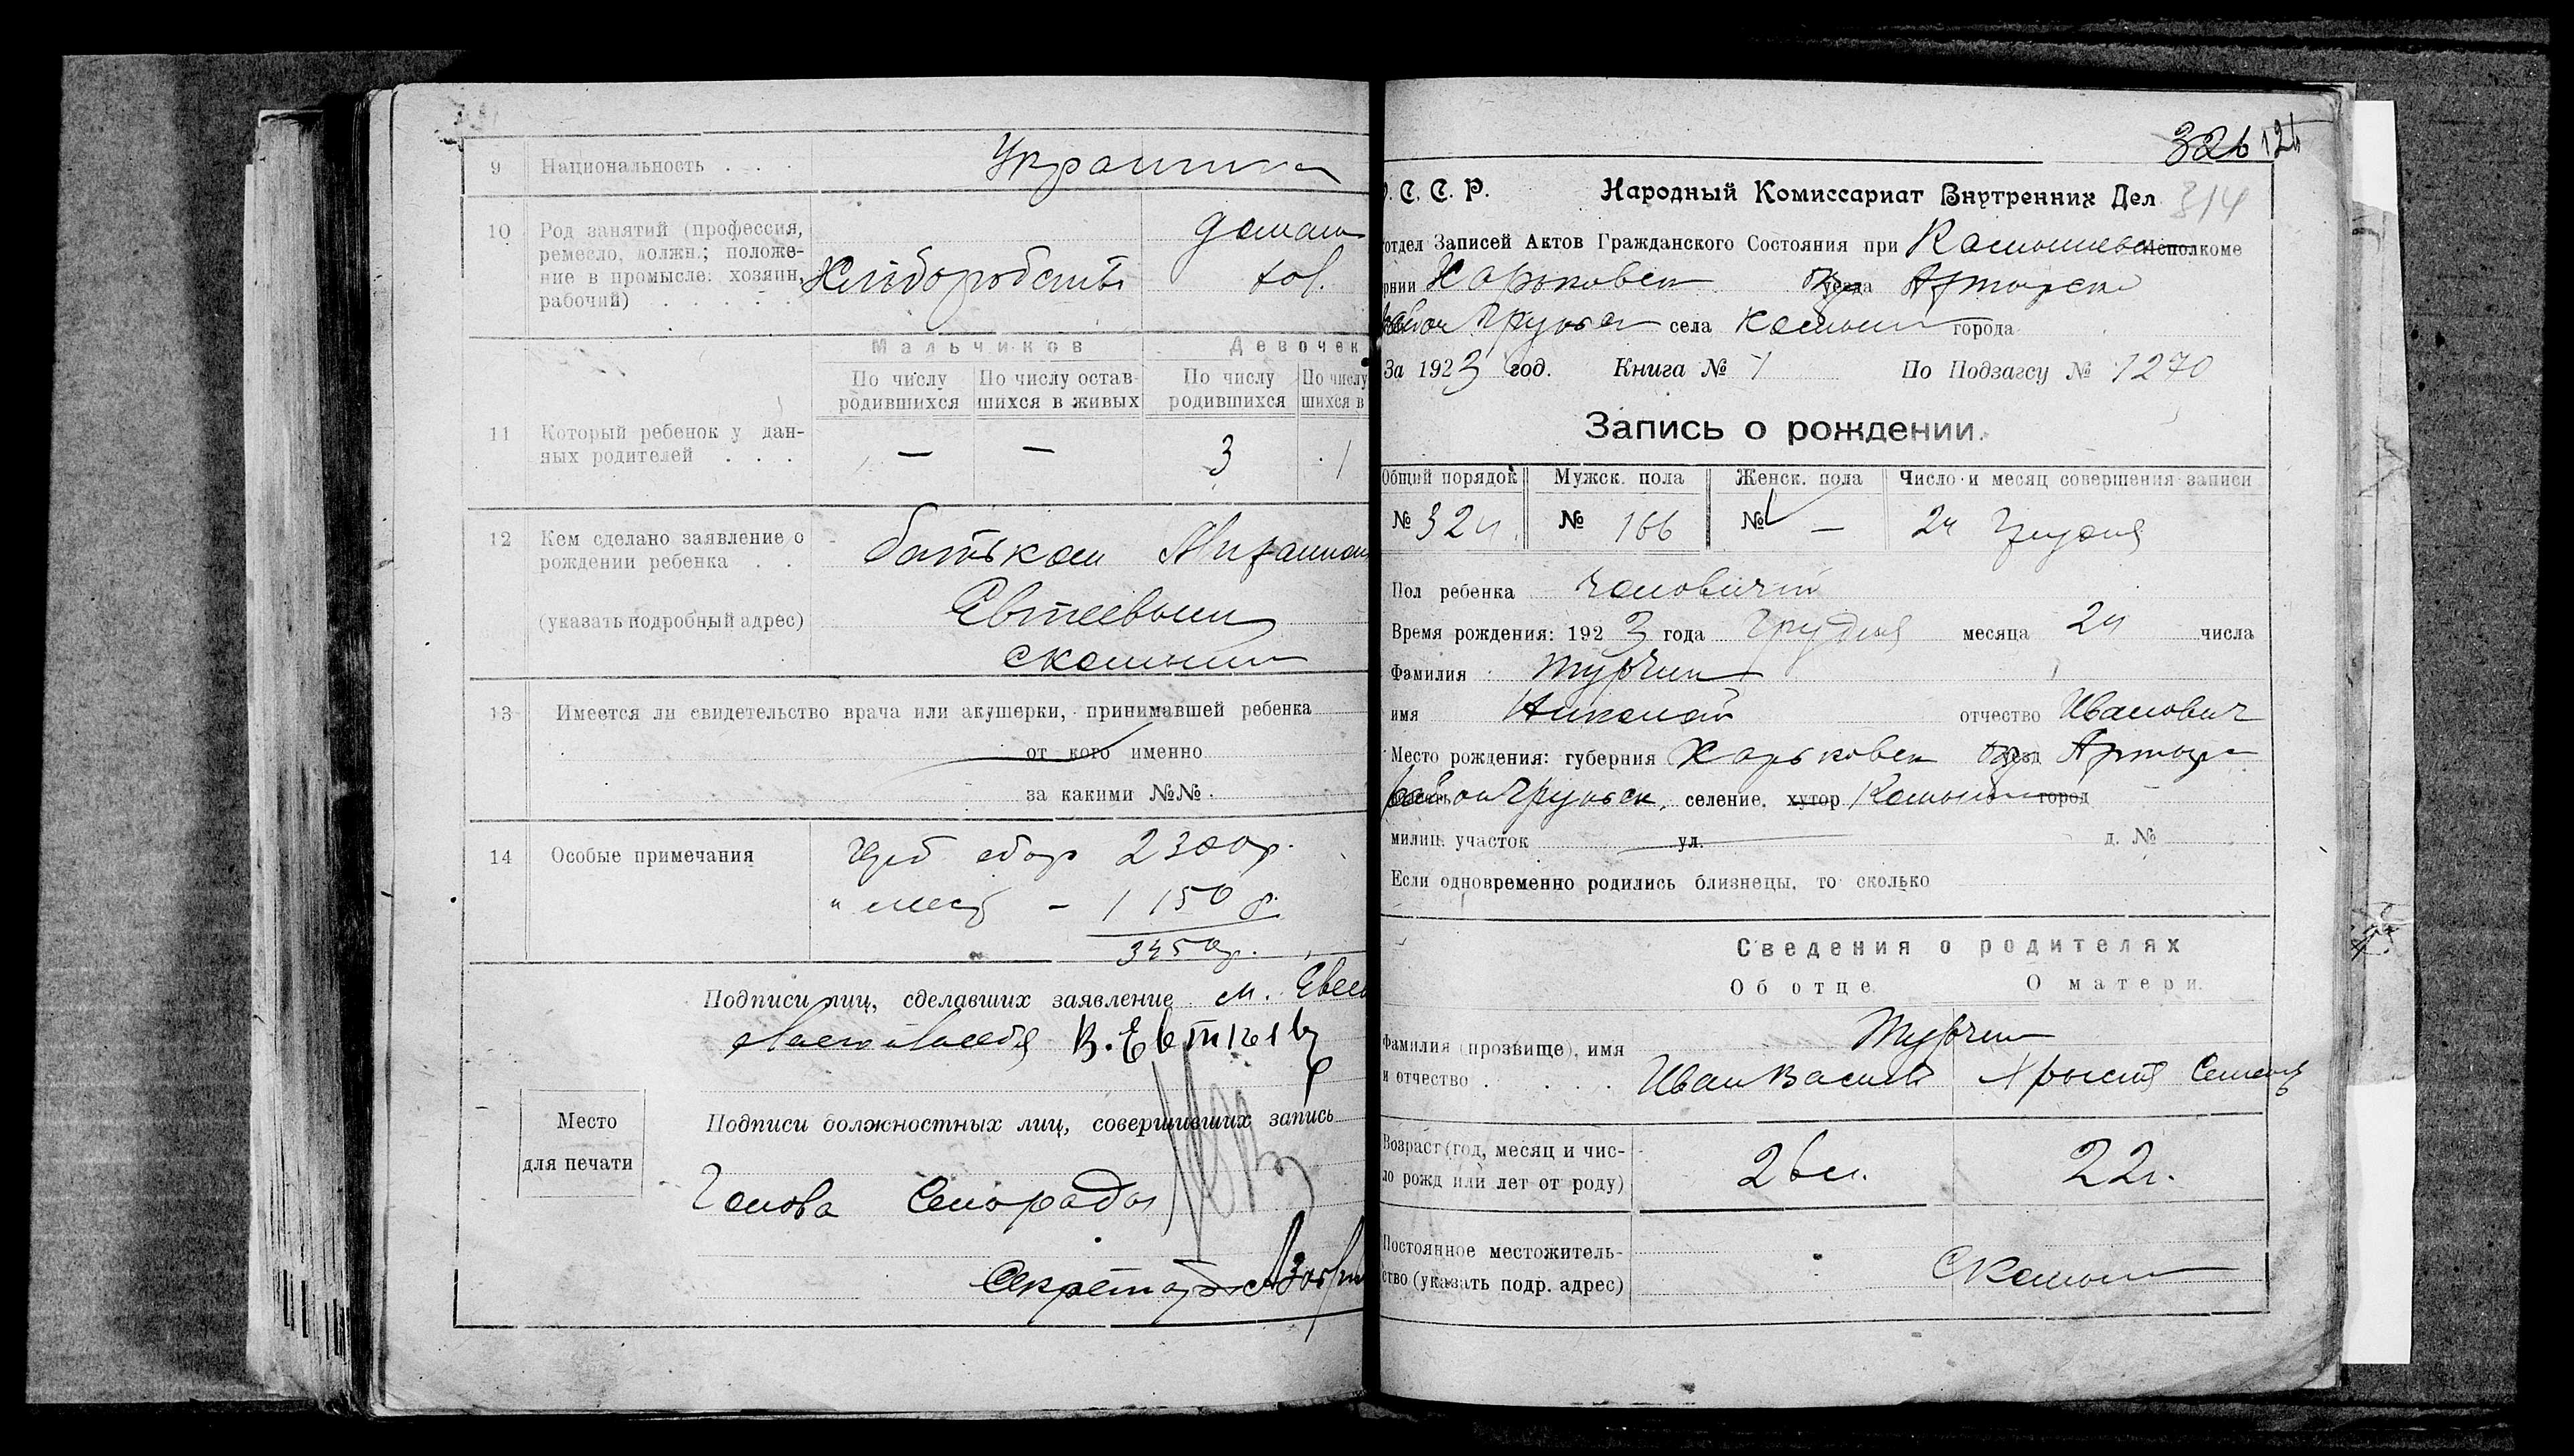 9 Национальность . . . Украинка
10 Род занятий (профессия, ремесло, должн.; положе-
ние в промысле: хозяин, рабочий) . . . . . Хліборобств
домаш
Мальчиков Девочек
По числу родившихся По числу остав-шихся в живых По числу родившихся По числу шихся в
11 Который ребенок у дан-
ных родителей . . . — — 3 1
12 Кем сделано заявление о
рождении ребенка . . батьком
(указать подробный адрес) Евтеевым
13 Имеется ли свидетельство врача или акушерки, принимавшей ребенка
от кого именно
за какими №№
14 Особые примечания
Герб сбор 2300р.
" мест — 1150р.
3450р.
Подписи лиц, сделавших заявление М.
Место
для печати
Подписи должностных лиц, совершивших запись
Голова
Секретарь
326 124
314
С. С. Р. Народный Комиссариат Внутренних Дел
отдел Записей Актов Гражданского Состояния при Исполкоме
рнии Харьковск уезда
села города
За 1923 год. Книга № 1 По Подзагсу № 1270
Запись о рождении.
Общий порядок Мужск. пола Женск. пола Число и месяц совершения записи
№ 324 № 166 № — 24 Грудня
Пол ребенка чоловичий
Время рождения: 1923 года Грудня месяца 24 числа
Фамилия Турчин
имя Николай отчество Иванович
Место рождения: губерния Харьковск уезд
селение, хутор город
милиц. участок ул. д. №
Если одновременно родились близнецы, то сколько
Сведения о родителях
Об отце. О матери.
Турчин
Фамилия (прозвище), имя
и отчество . . . . Иван Васильев Хрыстя Семенов
Возраст (год, месяц и чис-
ло рожд или лет от роду) 26 л. 22 л.
Постоянное местожитель-
ство (указать подр. адрес)